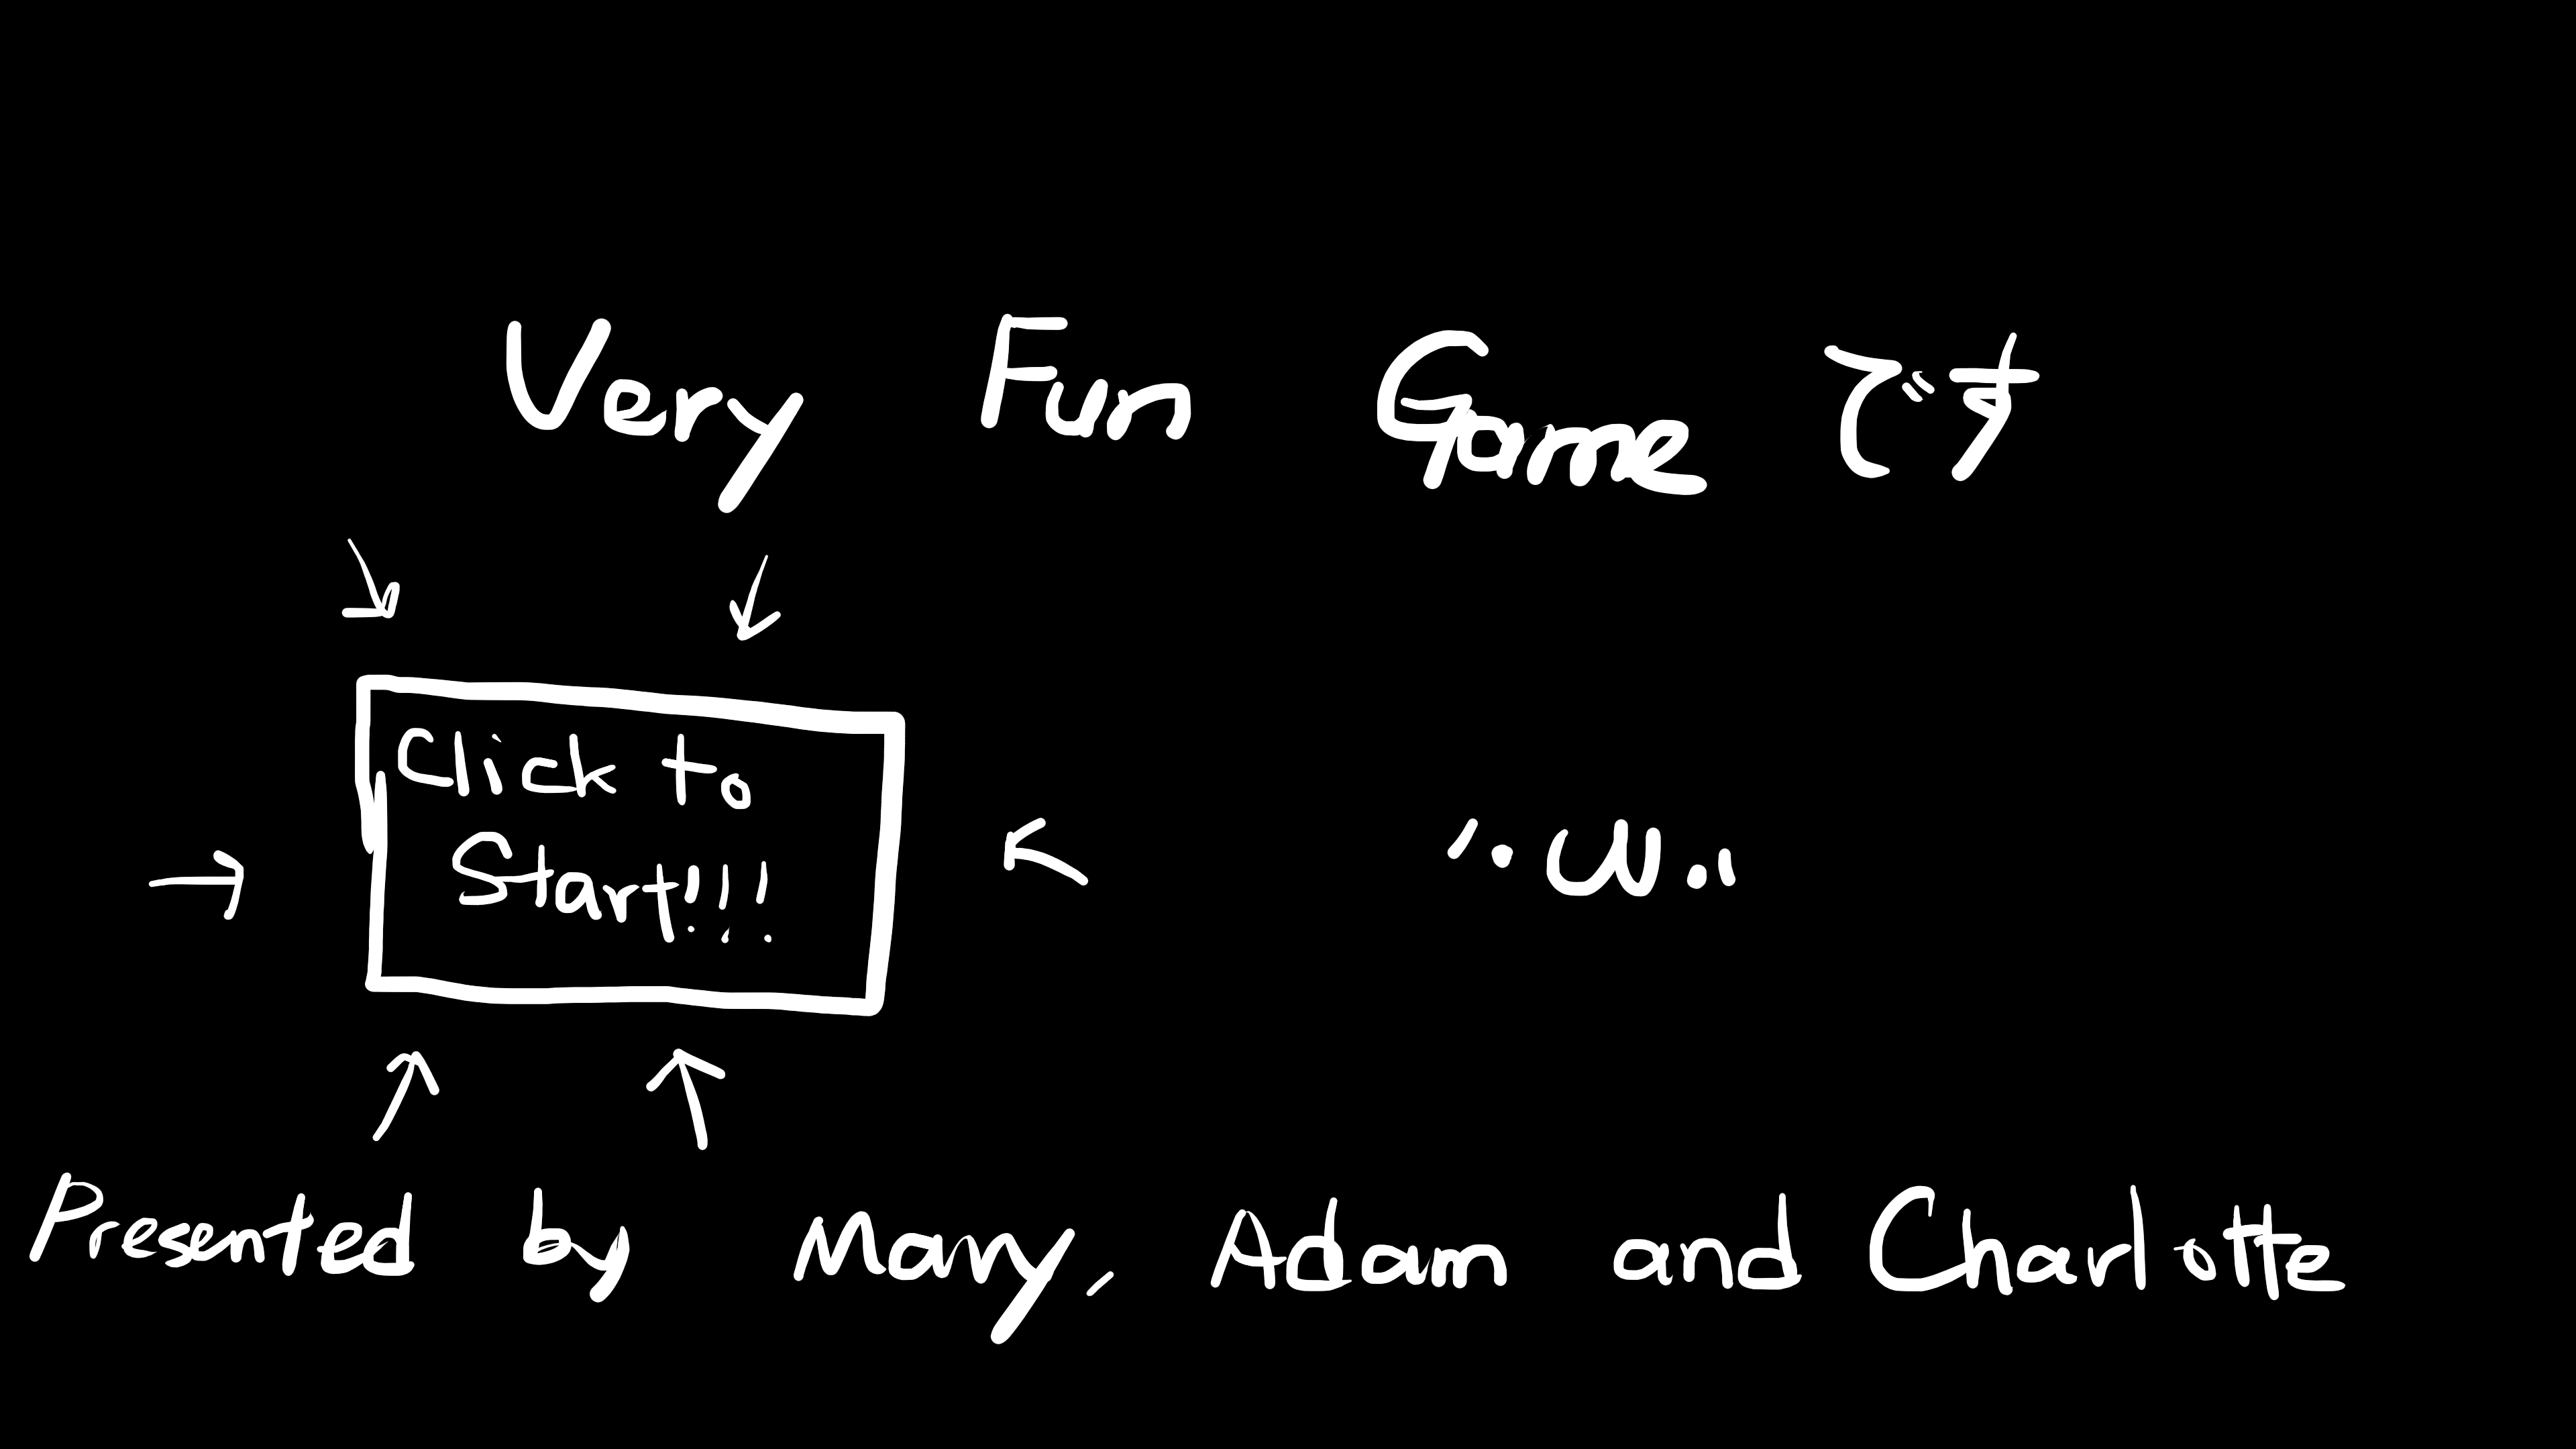 Very Fun Game です
Click to
Start!!!
Presented by Mary, Adam and Charlotte